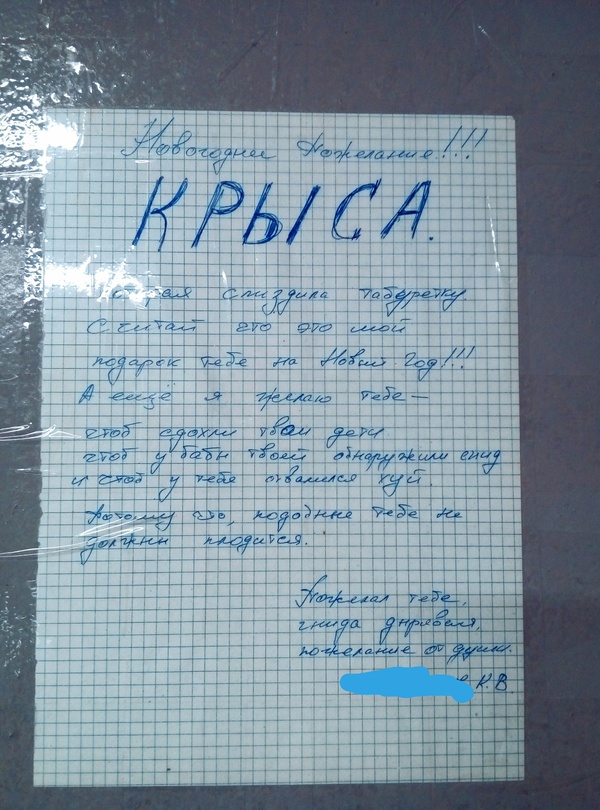 Новогоднее пожелание!!!
КРЫСА.
которая спиздила табуретку.
Считай что это мой
подарок тебе на Новый год!!!
А ещё я желаю тебе —
чтоб сдохли твои дети
чтоб у бабы твоей обнаружили спид
и чтоб у тебя отвалился хуй.
Потому что, подобные тебе не
должны плодится.
Пожелал тебе,
гнида дырявая,
пожелание от души.
К.В.